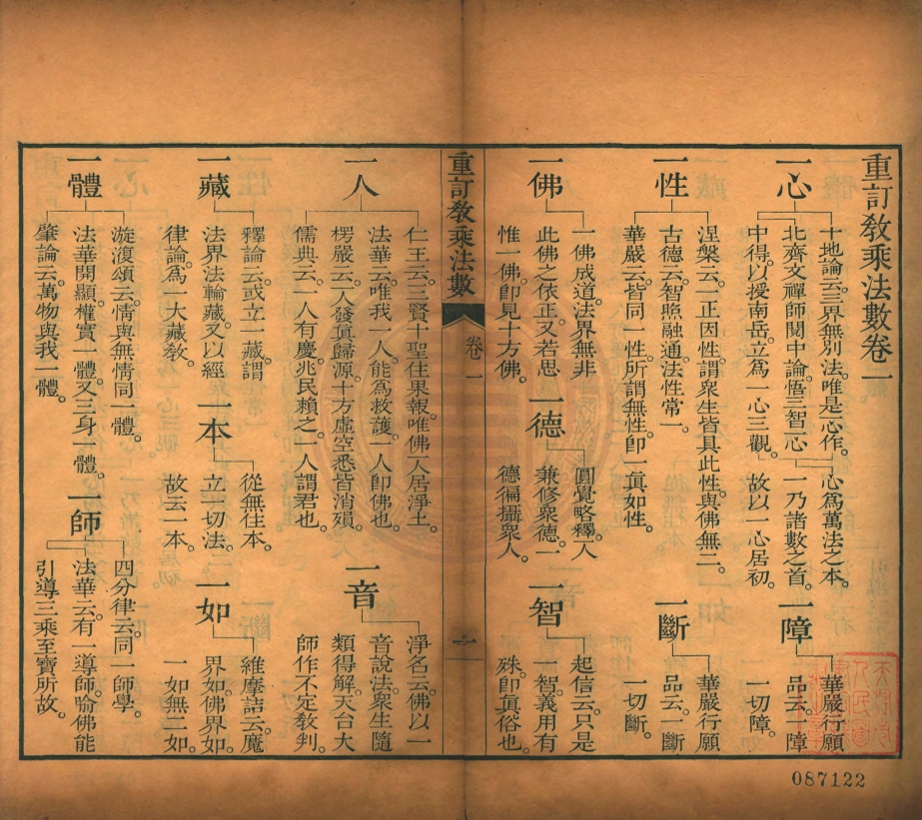 重訂敎乘法數卷一
一心
十地論云。三界無別法。唯是心作。
北齊文禪師閱中論。悟三智一心
中得。以授南岳。立爲一心三觀。
心爲萬法之本。
一乃諸數之首。
故以一心居初。
一障
華嚴行願
品云。一障
一切障。
一性
涅槃云。一正因性。謂衆生皆具此性。與佛無二。
古德云。智照融通。法性常一。
華嚴云。皆同一性。所謂無性。卽一眞如性。
一斷
華嚴行願
品云。一斷
一切斷。
一佛
一佛成道。法界無非
此佛之依正。又若思
惟一佛。卽見十方佛。
一德
圓覺略釋。一人
兼修衆德。一
德徧攝衆人。
一智
起信云。只是
一智。義用有
殊。卽眞俗也。
重訂敎乘法數
卷一
一
一人
仁王云。三賢十聖住果報。唯佛一人居淨土。
法華云。唯我一人。能爲救護。一人卽佛也。
楞嚴云。一人發眞歸源。十方虛空悉皆消殞。
儒典云。一人有慶。兆民賴之。一人謂君也。
一音
淨名云。佛以一
音說法。衆生隨
類得解。天台大
師作不定敎判。
一藏
釋論云。或立一藏。謂
法界法輪藏。又以經
律論。爲一大藏敎。
一本
從無住本。
立一切法。
故云一本。
一如
維摩詰云。魔
界如。佛界如。
一如無二如。
一體
漩澓頌云。情與無情同一體。
法華開顯。權實一體。又三身一體。
肇論云。萬物與我一體。
一師
四分律云。同一師學。
法華云。有一導師。喻佛能
引導三乘至寶所故。
087122